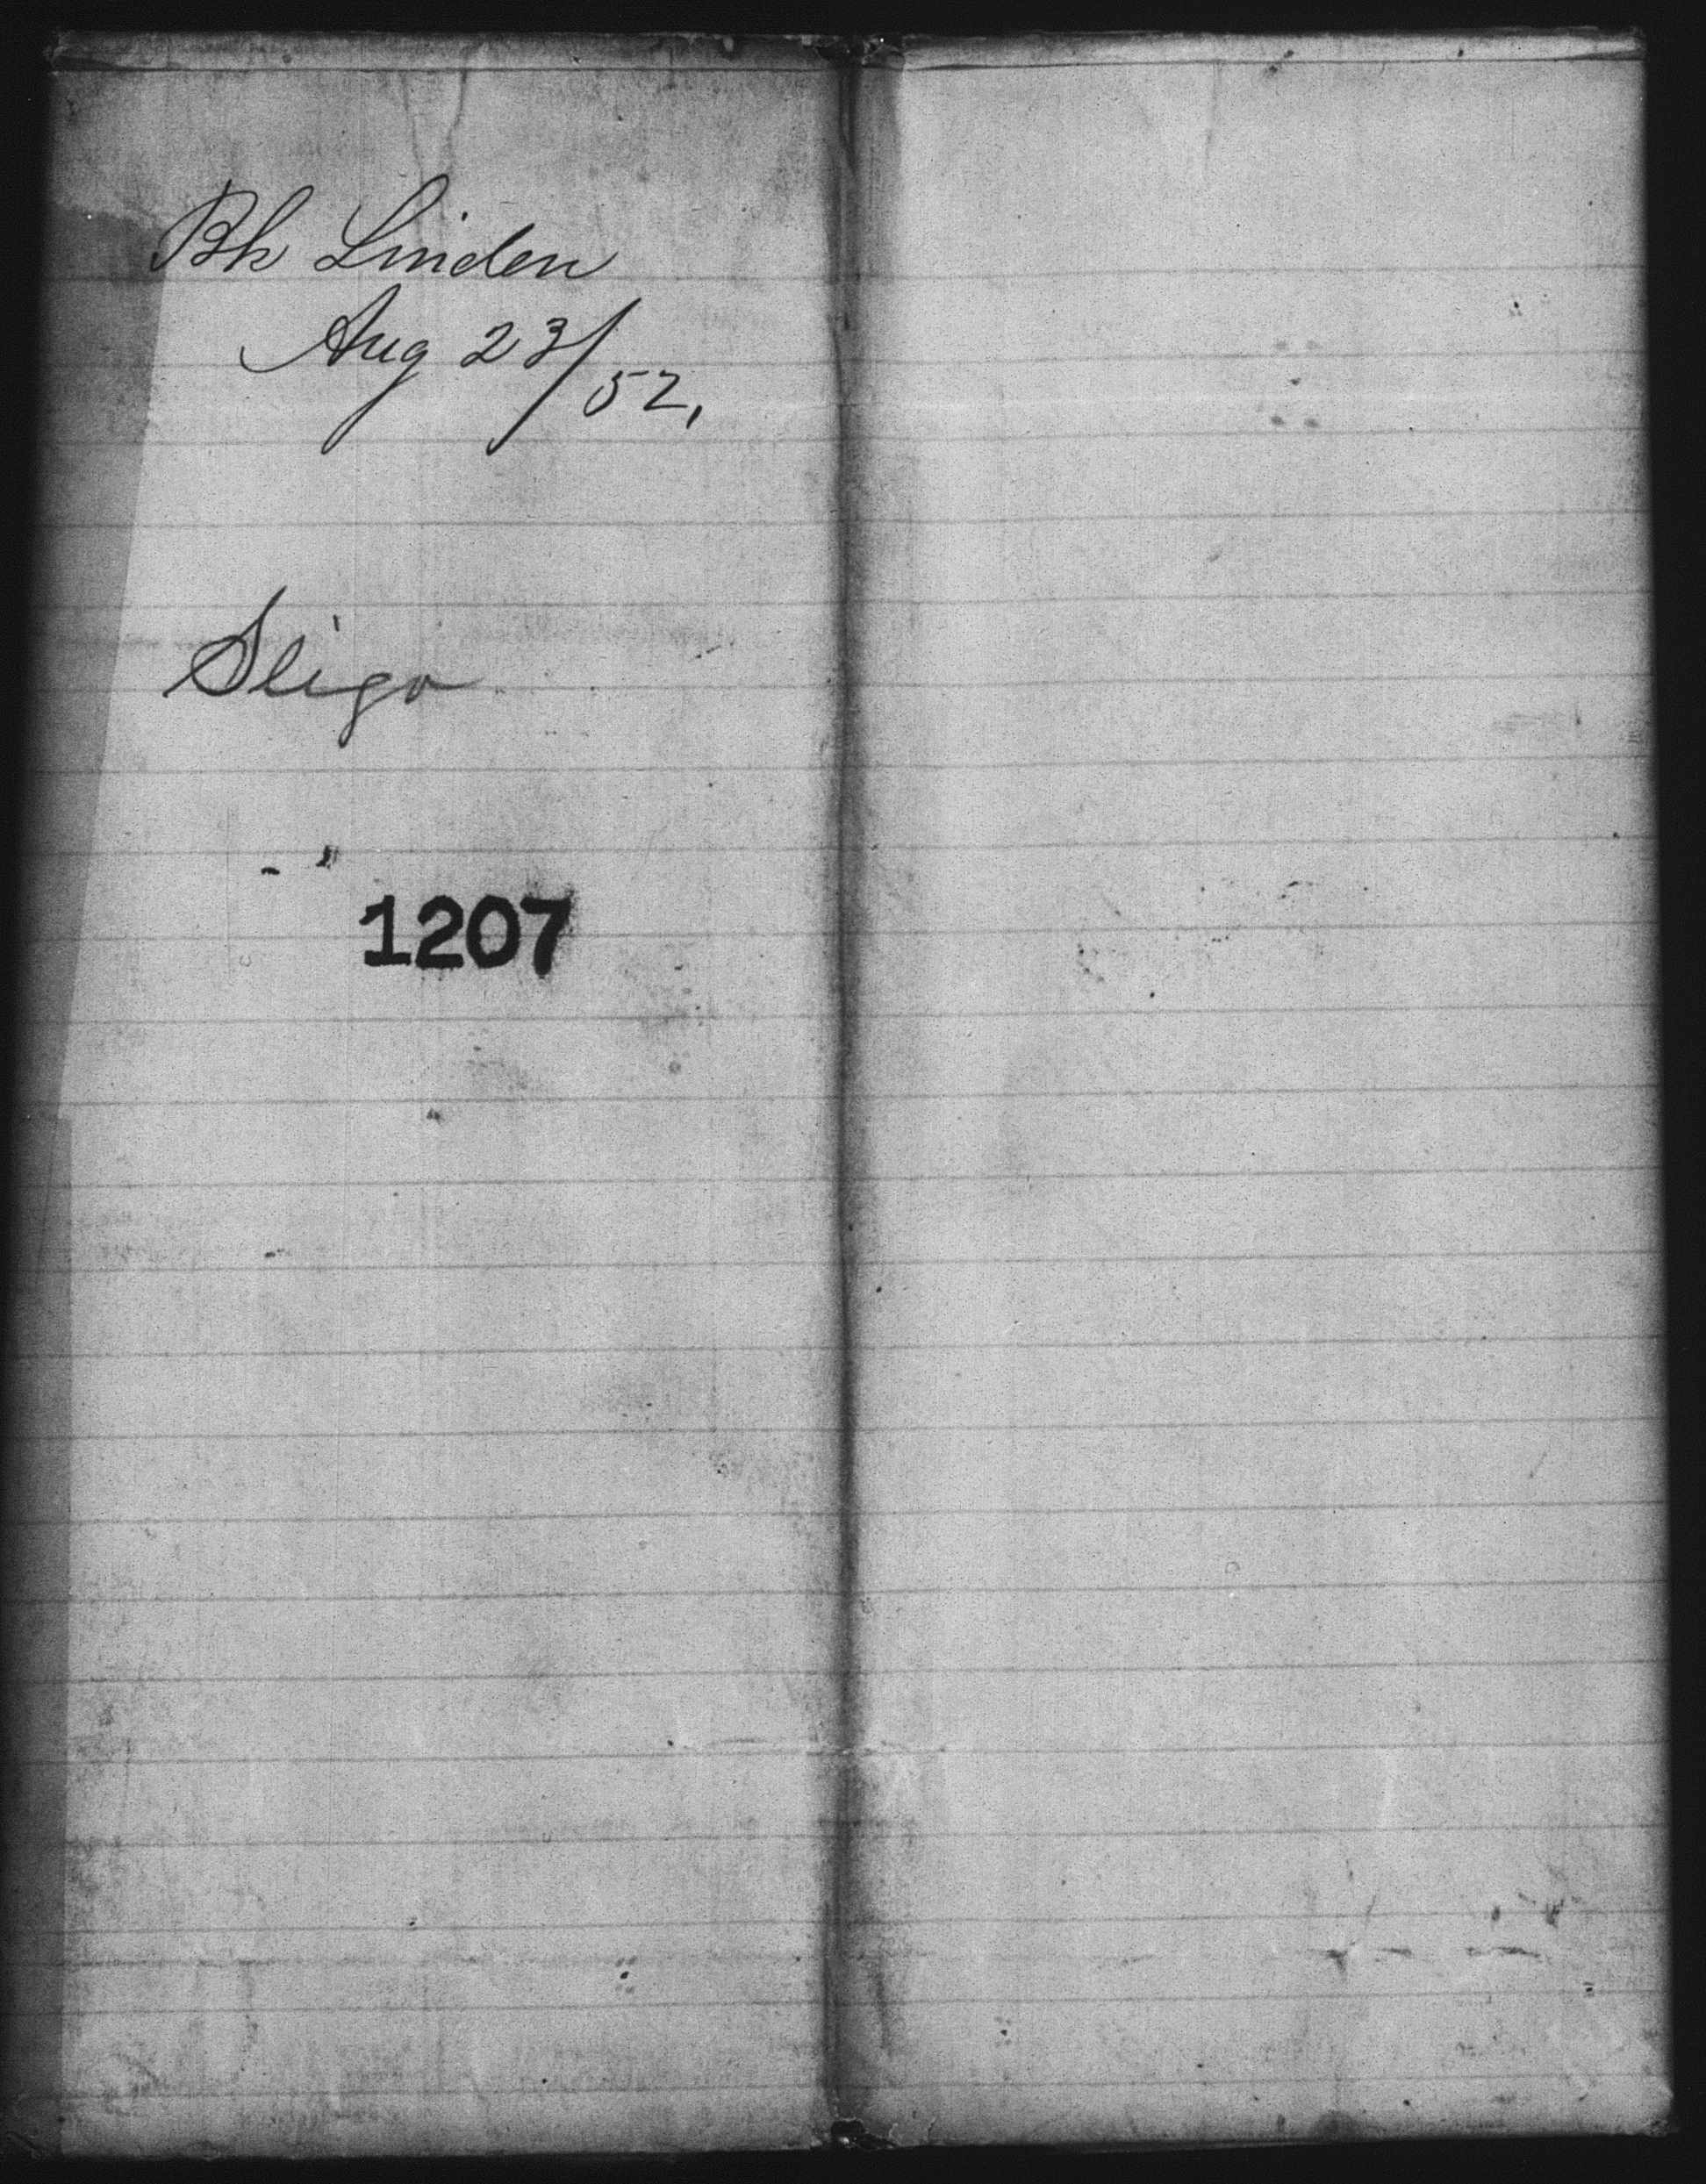 Bk Linden
Aug 23/52.
Sligo
1207